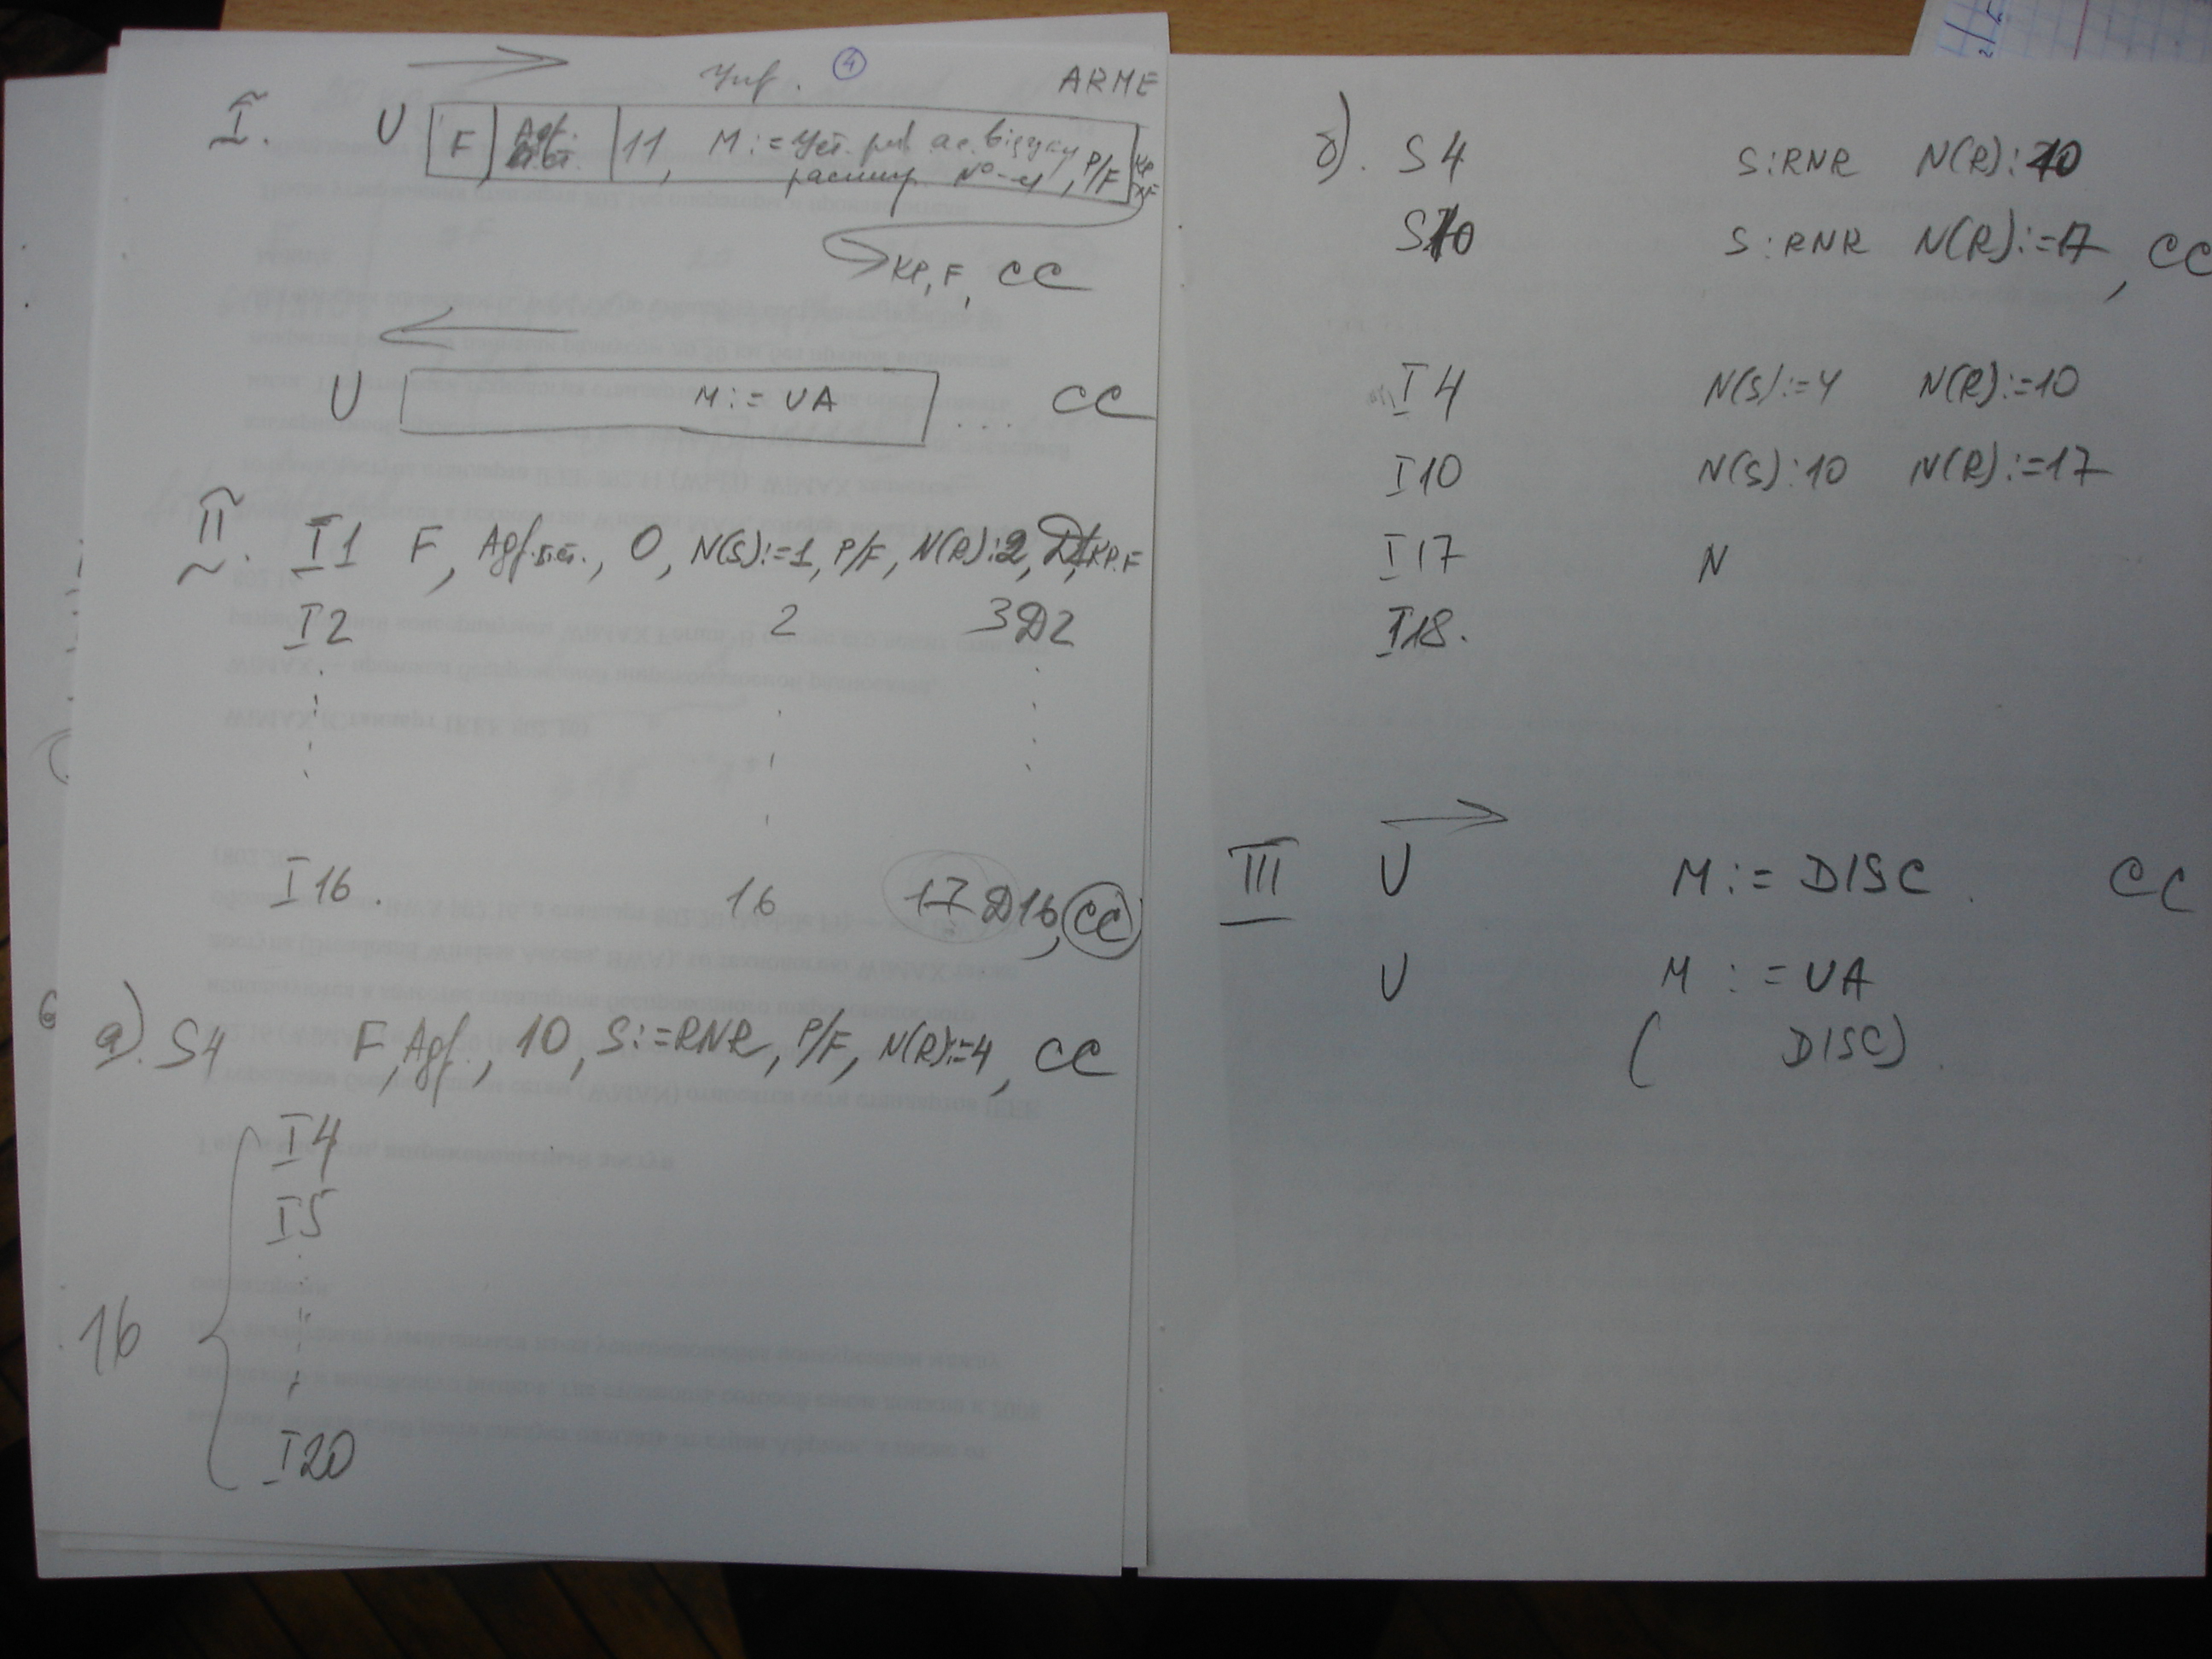 ④ ARME
I. U F 11, M:= Уст. P/F
расшир. №-и
КР, F, CC
U M:= UA ... CC
II. I1 F, Адр., 0, N(S):=1, P/F, N(R):2, Д1, КР.F
I2 2 3 Д2
I16. 16 17 Д16, CC
а). S4 F, Адр., 10, S:=RNR, P/F, N(R):=4, CC
I4
I5
16
I20
б). S4 S:RNR N(R):10
S10 S:RNR N(R):=17, CC
I4 N(S):=4 N(R):=10
I10 N(S):10 N(R):=17
I17 N
I18.
III U M:= DISC. CC
U M:= UA
( DISC).